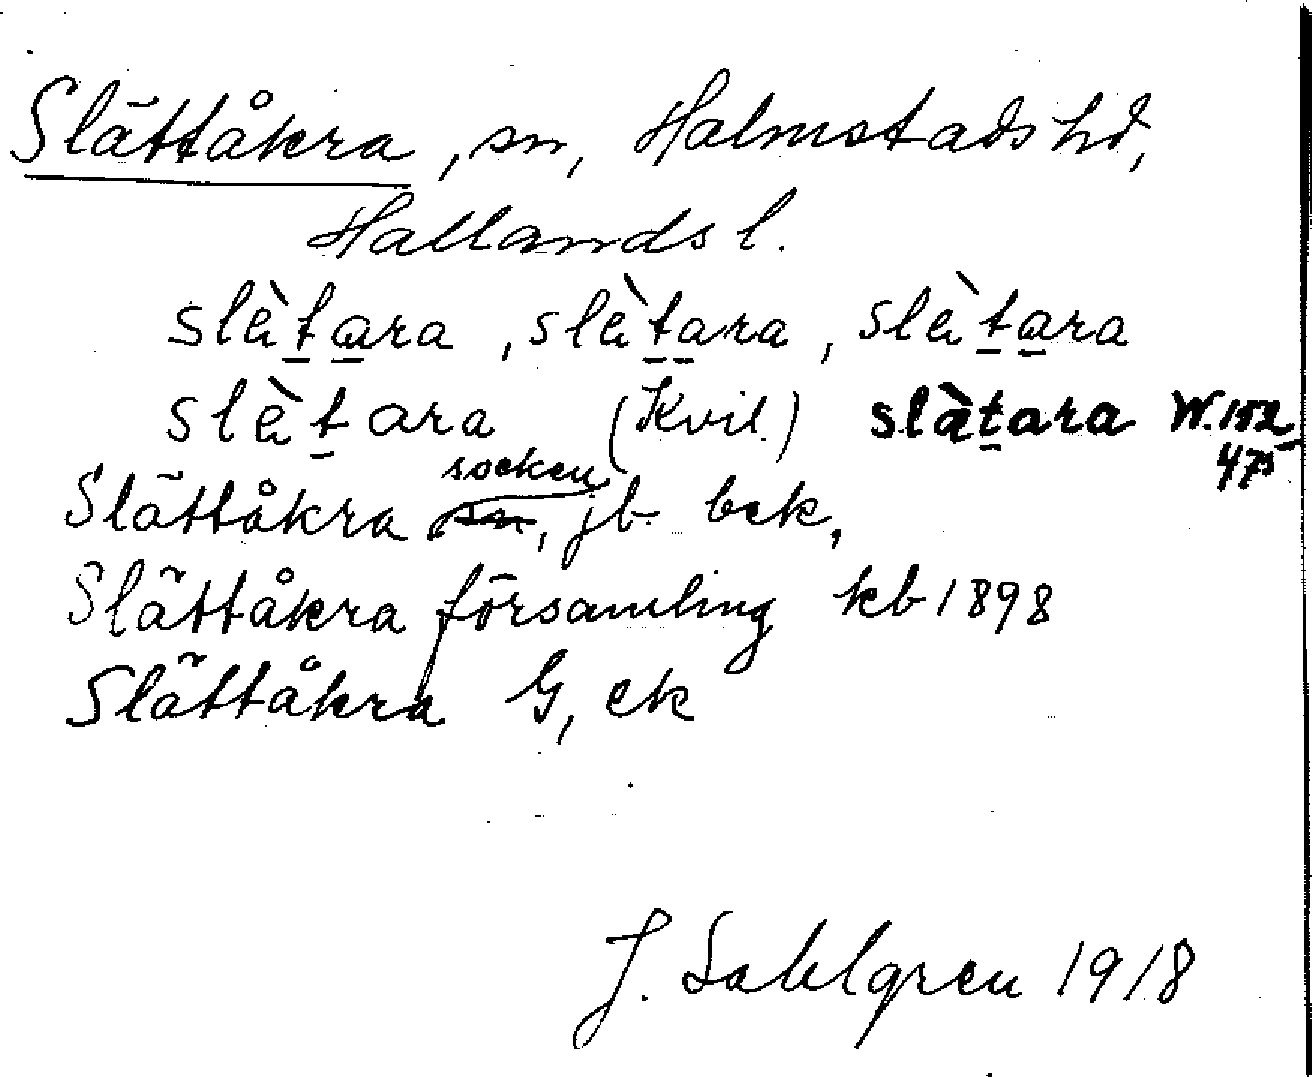 Slättåkra, sn, Halmstads hd,
Hallands l.
slètara, slètara, slètara
slètara (Kvil.) slàtara W. 152
475
Slättåkra socken, jb bck,
Slättåkra församling kb 1898
Slättåkra G, ck
J. Sahlgren 1918